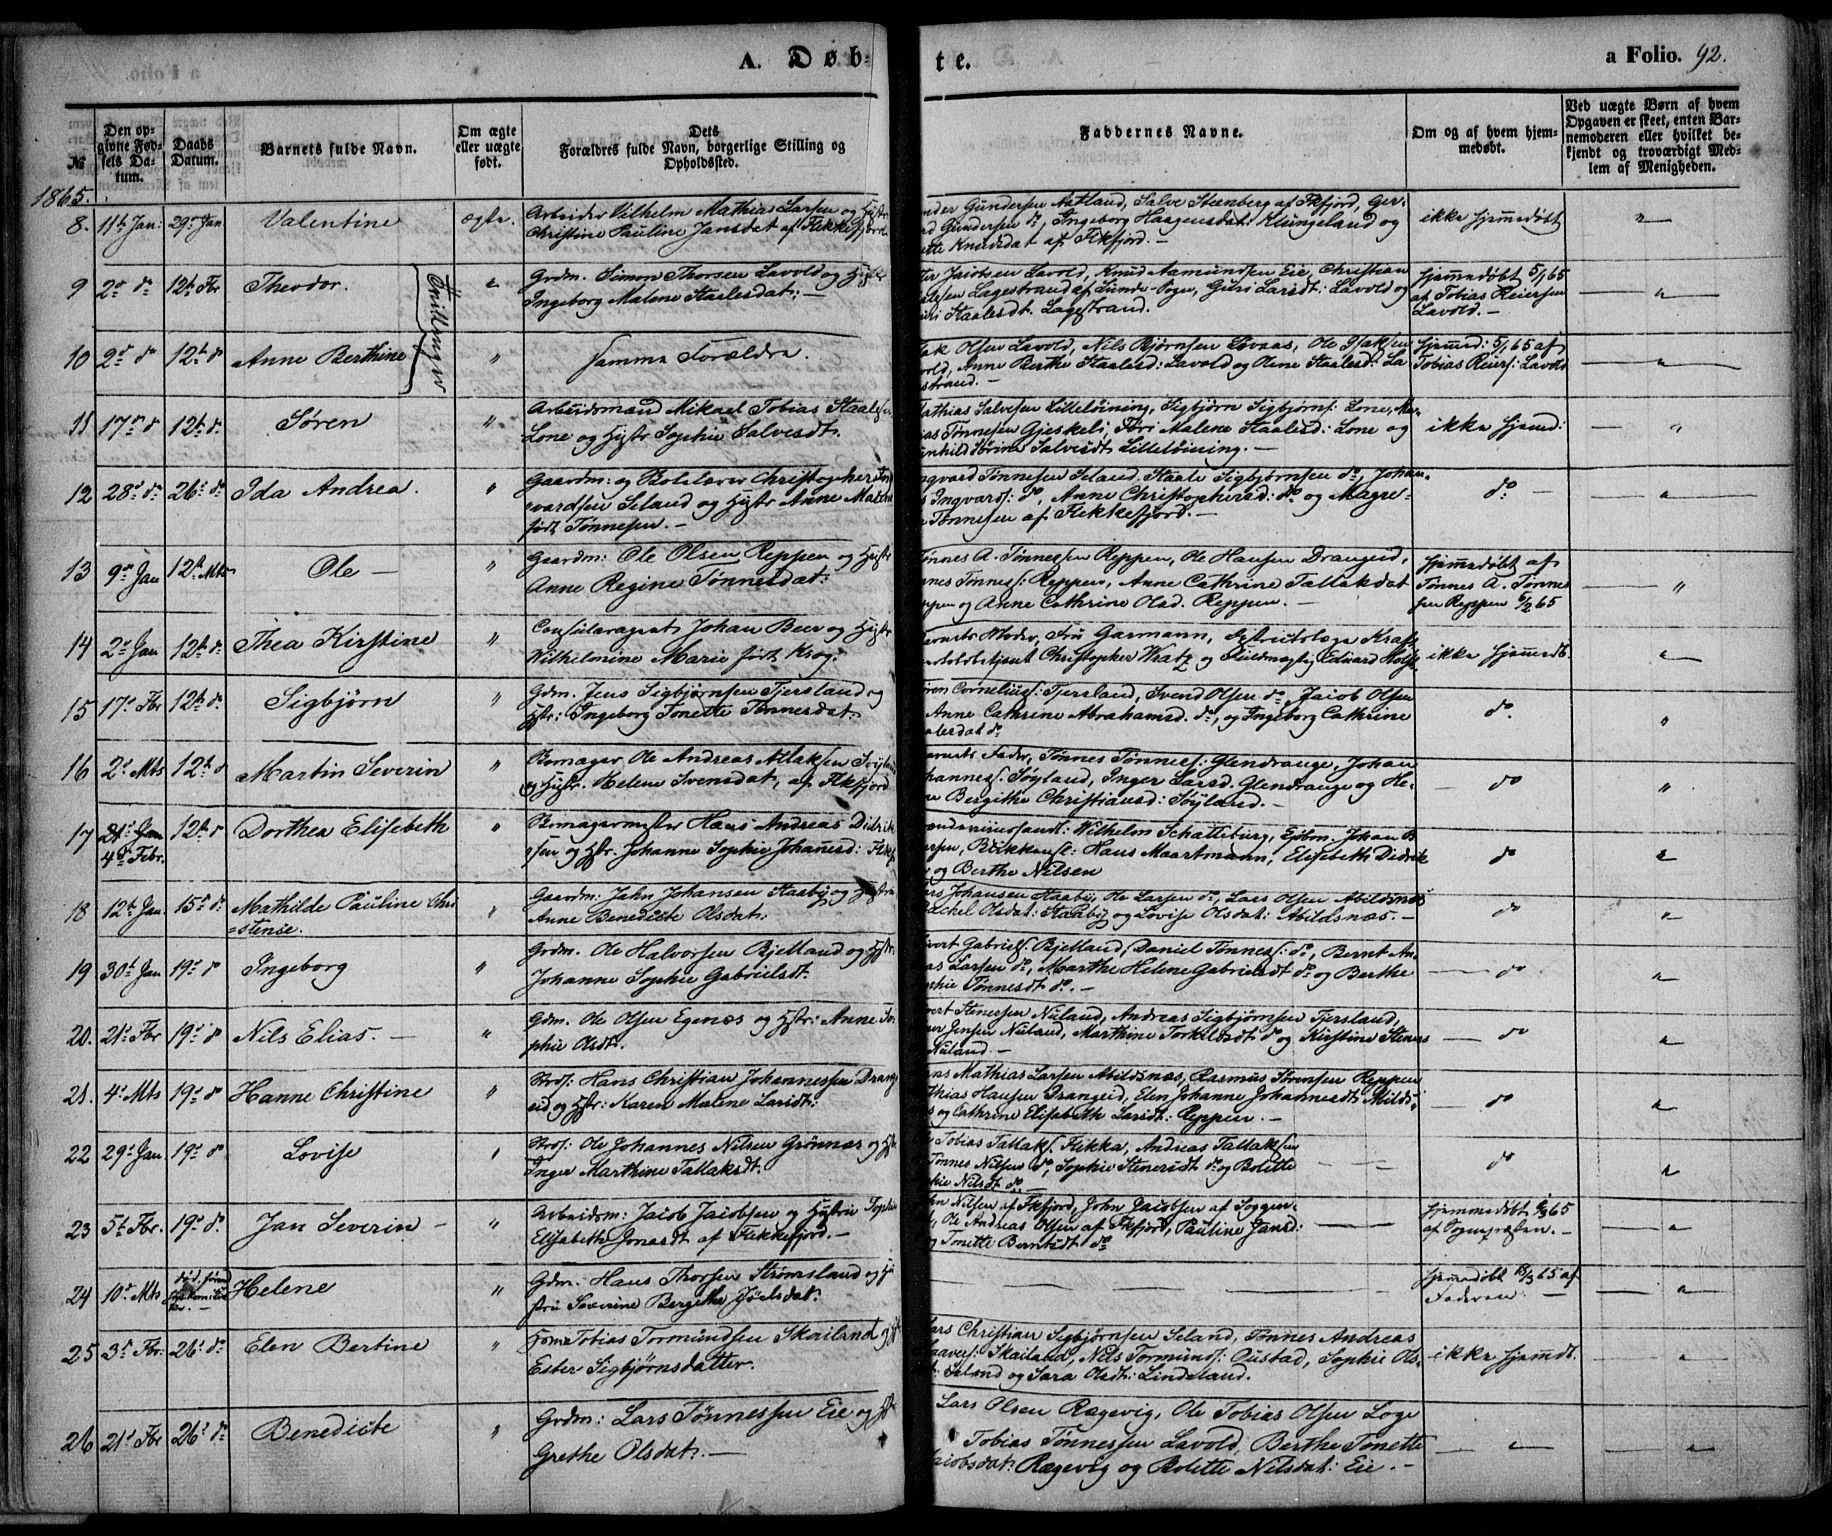 A. Døb-
te.
a Folio. 92.
№
Den op-
givne Fød-
sels Da-
tum.
Daabs
Datum.
Barnets fulde Navn.
Om ægte
eller uægte
født.
Dets
Forældres fulde Navn, borgerlige Stilling og
Opholdssted.
Faddernes Navne.
Om og af hvem hjem-
medøbt.
Ved uægte Børn af hvem
Opgaven er skeet, enten Bar-
nemoderen eller hvilket be-
kjendt og troværdigt Med-
lem af Menigheden.
1865.
8. 11te Jan: 29de Jan Valentine ægte.
Arbeider Vilhelm Mathias Larsen og Hstr
Christine Pauline Jansdat af Flekkefjord
nder Gundersen Aatland, Salve Steenberg af Fkfjord, Ger-
d Gundersen do, Ingeborg Haagensdat: Klungeland og
ette Knudsdat af Fkfjord. —
ikke hjemmedøbt "
9 2den do 12te Fbr Theodor. "
Tvillinger
Grdm. Simon Thorsen Lavold og Hstr
Ingeborg Malene Staalesdat: —
er Jacobsen Lavold, Knud Aamundsen Eie, Christian
lesen Lagestrand af Lunde Sogn, Guri Larsdt: Lavold og
uri Staalesdt. Lagestrand.
hjemmedøbt 5/1 65
af Tobias Reiersen
Lavold. — "
10 2den do 12te do Anne Berthine "
samme Forældre.
ak Olsen Lavold, Nils Bjørnsen Lovaas, Ole Isaksen
vold, Anne Berthe Staalesd: Lavold og Olene Staalesd: La-
estrand. —
hjemmed: 5/1 65 af
Tobias Reiers: Lavold "
11 17de do 12te do. Søren "
Arbeidsmand Mikael Tobias Staalesen
Lone og Hstr Sophie Salvesdt.
athias Salvesen Lilleløining, Sigbjørn Sigbjørns: Lone, Ma-
ias Tønnesen Gjeskeli, Siri Malene Staalesd: Lone og
unhild Sørine Salvesdt Lilleløining. —
ikke hjemmd: "
12 28de do. 26de do. Ida Andrea. "
Gaardm: og Skolelærer Christopher Ing
vardsen Seland og Hstr Anne Malene
født Tønnesen. —
ngvard Tønnesen Seland, Staale Sigbjørnsen do, Johan-
s Ingvards: do, Anne Christophersd: do og Magre-
e Tønnesen af Flekkefjord. —
do. — "
13 9de Jan 12te Mts Ole — "
Gaardm: Ole Olsen Reppen og Hstr
Anne Regine Tønnesdat:
ønnes A. Tønnessen Reppen, Ole Hansen Drangeid,
nes Tønnes: Reppen, Anne Cathrine Tallaksdat
ppen og Anne Cathrine Olsd. Reppen. —
hjemmedøbt af
Tønnes A. Tønne
sen Reppen 5/2 65 "
14 2den Jan 12te do. Thea Kirstine "
Consularagent Johan Beer og Hstr
Wilhelmine Marie født Krog.
arnets Moder, Fru Garmann, Distriktslæge Kraft
Christopher Wratz og Fuldmægtig Eduard
ikke hjemmdt. "
15 17de Fbr 12te do. Sigbjørn "
Gdm. Jens Sigbjørnsen Tjersland og
Hstr: Ingeborg Tonette Tønnesdat.
øren Cornelius: Tjersland, Svend Olsen do, Jacob Olsen
Anne Cathrine Abrahamsd. do, og Ingeborg Cathrine
alesdat do
do. "
16 2den Mts 12te do Martin Severin "
Skomager Ole Andreas Atlaksen Svige
og Hstr. Helene Svensdat, af Flkfjord
arnets Fader, Tønnes Tønnes: Glendrange, Johan
hannes: Søyland, Inger Larsd. Glendrange og He-
ne Bergithe Christiansd: Søyland. —
do "
17 21de Jan
4de Febr. 12te do Dorthea Elisebeth "
Skomagermester Hans Andreas Didrik
sen og Hstr. Johanne Sophie Johansd: Flekkf
Wilhelm Schatteburg, Johan B
Hans Maartmann, Elisebeth Didrik
og Berthe Nilsen
do "
18 12te Jan 15de do Mathilde Pauline Chri
=stense. "
Gaardm: Jahn Johansen Staaby og Hstru
Anne Benedicte Olsdat:
ars Johansen Staaby, Ole Larsen do, Lars Olsen Abildsnæs
achel Olsdat: Staaby og Lovise Olsdat: Abildsnæs. —
do "
19 30te Jan 19de do Ingeborg "
Grdm. Ole Halvorsen Bjelland og Hstr
Johanne Sophie Gabrielsdt.
ivert Gabriels: Bjelland, Daniel Tønnes: do, Bernt An-
as Larsen do, Marthe Helene Gabrielsdt do og Berthe
phie Tønnesdt do. —
do "
20. 21de Fbr 19de do Nils Elias. — "
Gdm. Ole Olsen Egenæs og Hstr: Anne So
phie Olsdt.
vert Stenersen Nuland, Andreas Sigbjørnsen Tjersland,
er Jensen Nuland, Marthine Torkelsdt do og Kirstine Steners
Nuland. —
do "
21. 4de Mts 19de do Hanne Christine "
Strds: Hans Christian Johannessen Drang
eid og Hstr: Karen Malene Larsdt:
ans Mathias Larsen Abildsnæs, Rasmus Sørensen Reppen
athias Hansen Drangeid, Elen Johanne Johannesdt: Abilds
s og Cathrine Elisabeth Larsdt: Reppen. —
do "
22 29de Jan 19de do Lovise "
Strds: Ole Johannes Nilsen Grønnæs og Hst
Inger Marthine Tallaksdt.
Tobias Tallaks: Flikka, Andreas Tallaksen
Tønnes Nilsen do, Sophie Stenersdt do og Bolette
phie Nilsdt do
do "
23 5te Fbr. 19de do. Jan Severin — "
Arbeidsm: Jacob Jacobsen og Hstru Sophie
Elisabeth Jonasdt af Flekkefjord. —
hn Nilsen af Fkfjord, John Jacobsen af Soggen-
Ole Andreas Olsen af Fkfjord, Pauline Jansd:
og Tonette Berntsdt do
hjemmedøbt 65
af Sognepræsten. — "
24 10de Mts Helene "
Gdm: Hans Thorsen Strømsland og Hu
stru Severine Bergithe Joelsdat:
hjemmedøbt 13/3 65 af
Faderen — "
25 3de Fbr: 26de do. Elen Bertine "
Tobias Tormundsen Skailand og Hst
Ester Sigbjørnsdatter.
ars Christian Sigbjørnsen Seland, Tønnes Andreas
Skailand, Nils Tormunds: Oustad, Sophie Ols-
t: Seland og Sara Olsdt: Lindeland.
ikke hjemdt. "
26 21de Fbr 26de do Benedicte "
Grdm: Lars Tønnessen Eie og Hst
Grethe Olsdat: —
Lars Olsen Rægevig, Ole Tobias Olsen Loge
Tobias Tønnessen Lavold, Berthe Tonette
acobsdat: Rægevig og Bolette Nilsdat: Eie. —
" "